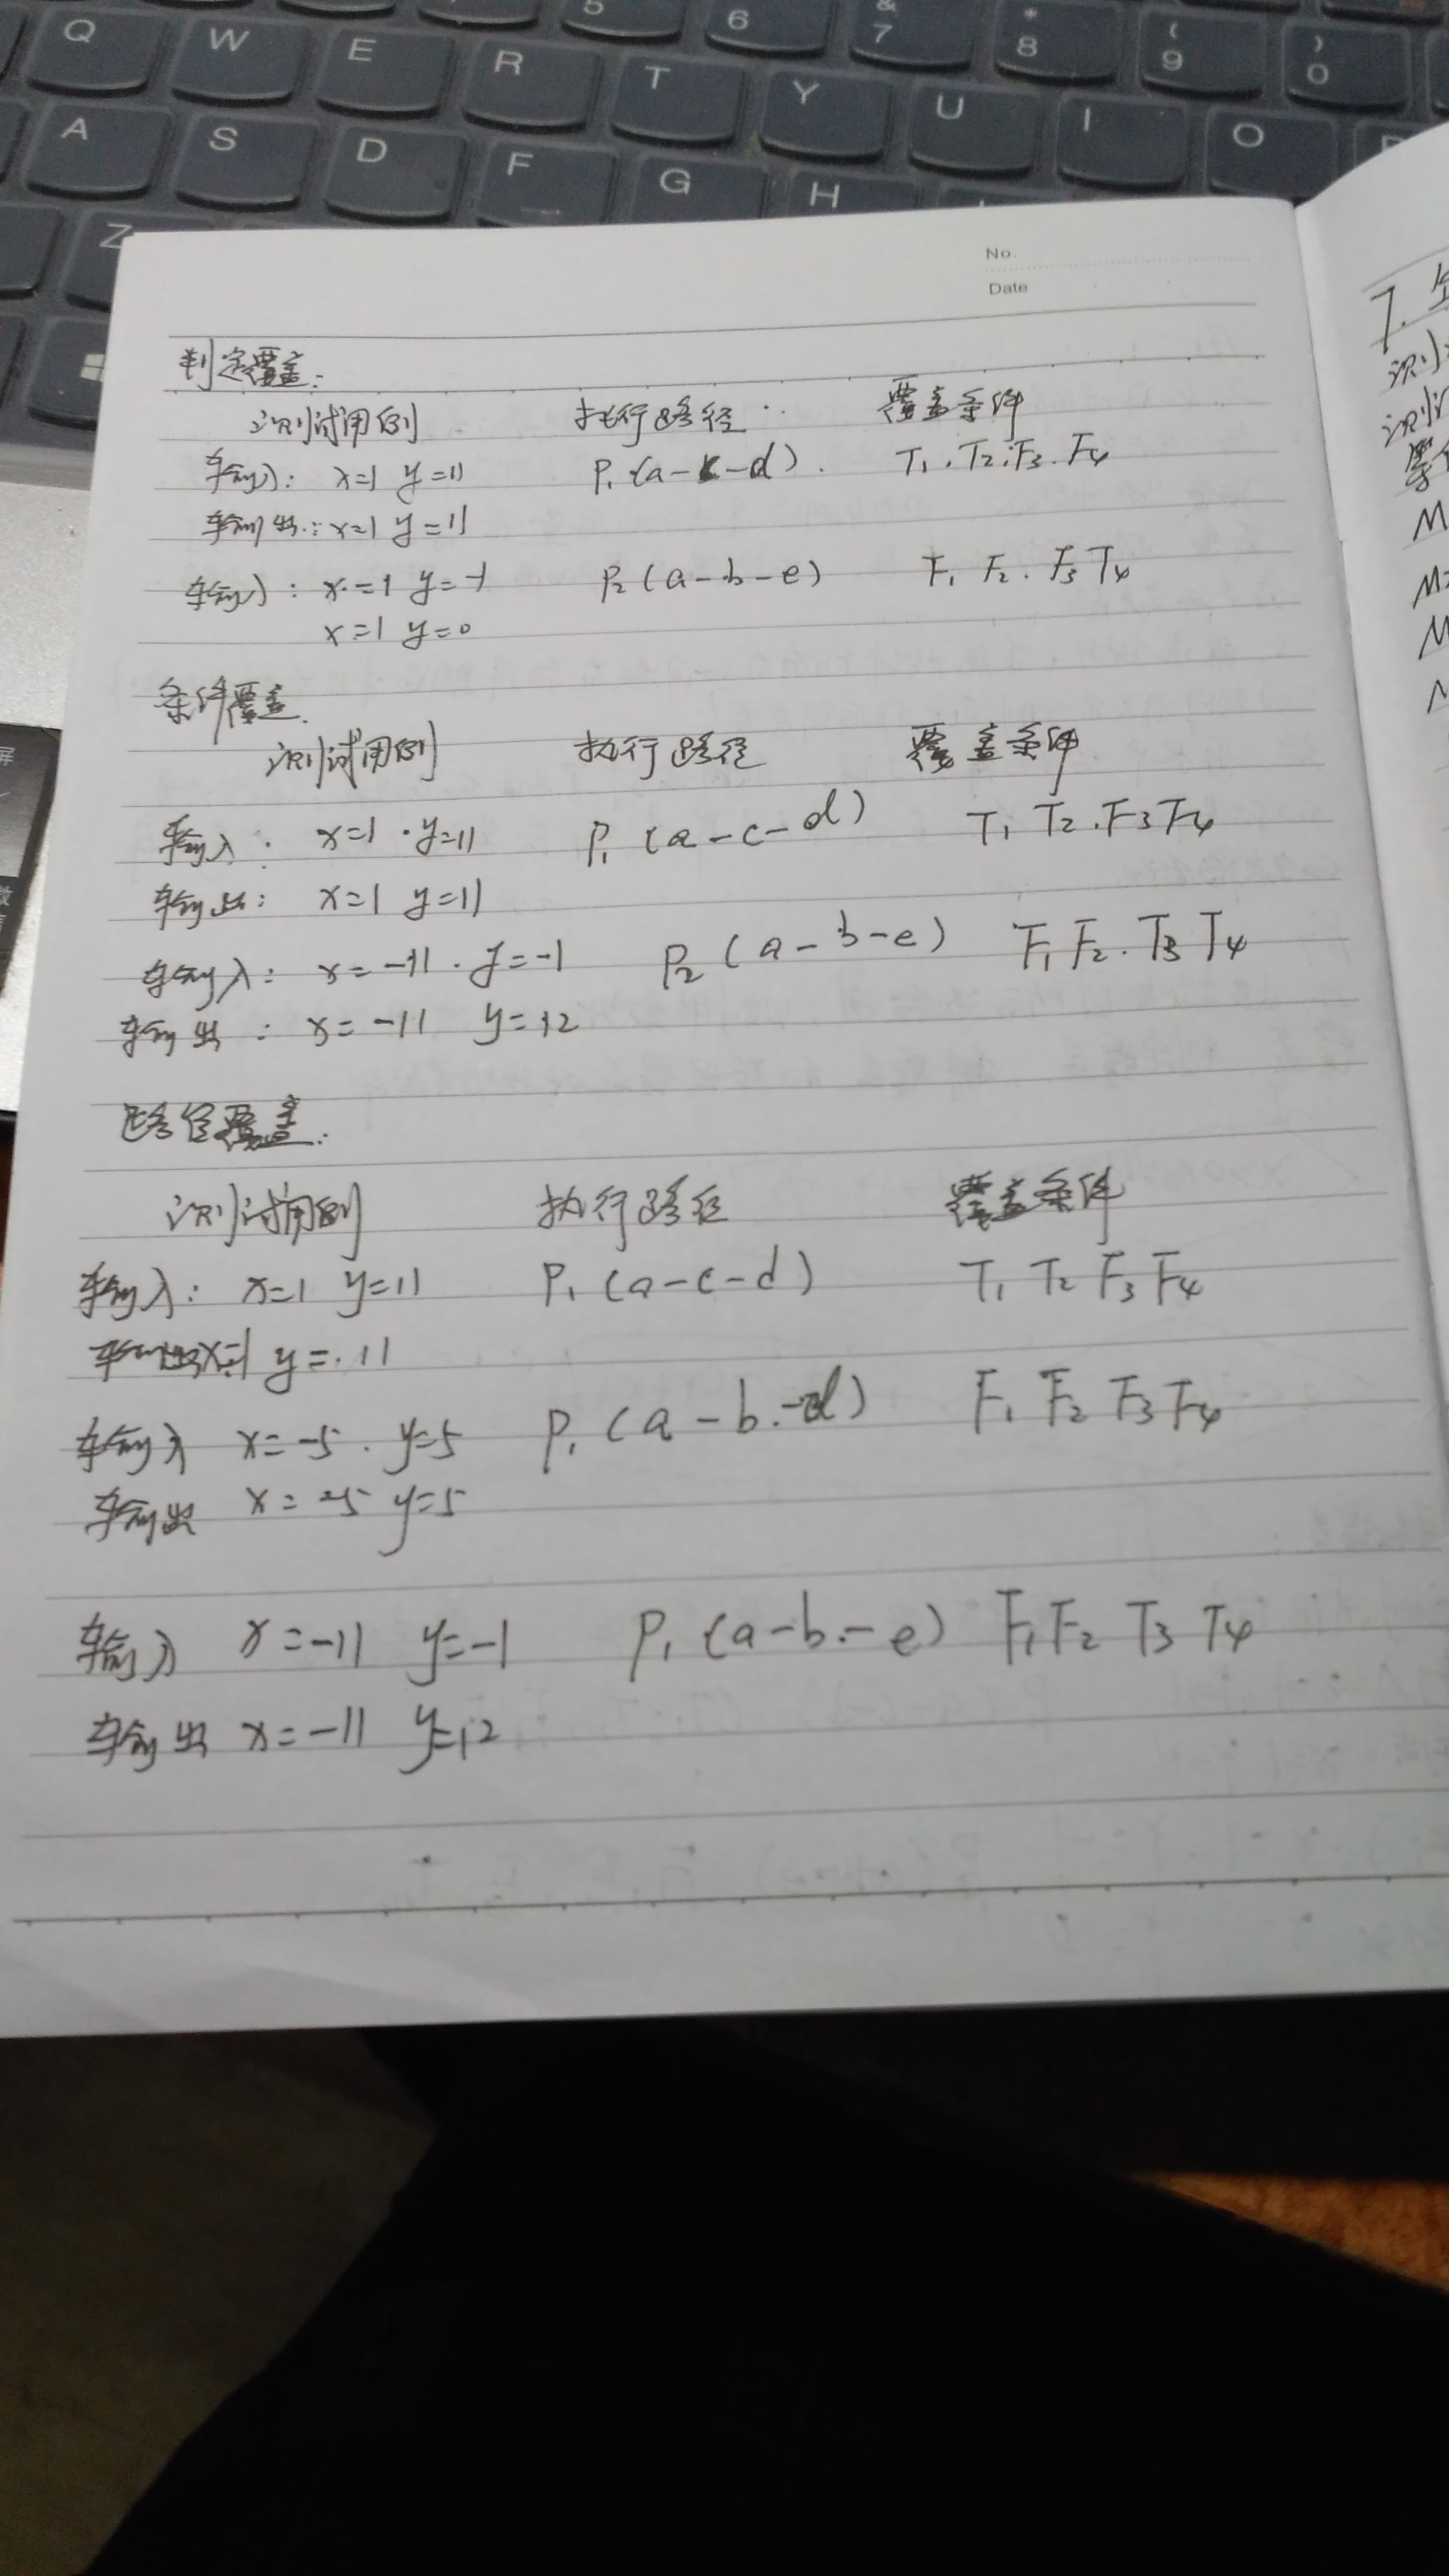 Q W E R T Y U I O
5 6 & 7 * 8 ( 9 ) 0
A S D F G H
Z
No.
Date
判定覆盖:
测试用例 执行路径 覆盖条件
输入: x=1 y=11 P1(a-c-d). T1.T2.F3.F4
输出: x=1 y=11
输入: x=1 y=-1 P2(a-b-e) F1 F2. F3 T4
x=1 y=0
条件覆盖.
测试用例 执行路径 覆盖条件
输入: x=1 y=11 P1(a-c-d) T1 T2.F3 F4
输出: x=1 y=11
输入: x=-11. y=-1 P2(a-b-e) F1 F2. T3 T4
输出: x=-11 y=12
路径覆盖:
测试用例 执行路径 覆盖条件
输入: x=1 y=11 P1(a-c-d) T1 T2 F3 F4
输出x=1 y=11
输入 x=-5. y=5 P1(a-b-d) F1 F2 F3 F4
输出 x=-5 y=5
输入 x=-11 y=-1 P1(a-b-e) F1 F2 T3 T4
输出 x=-11 y=12
7.